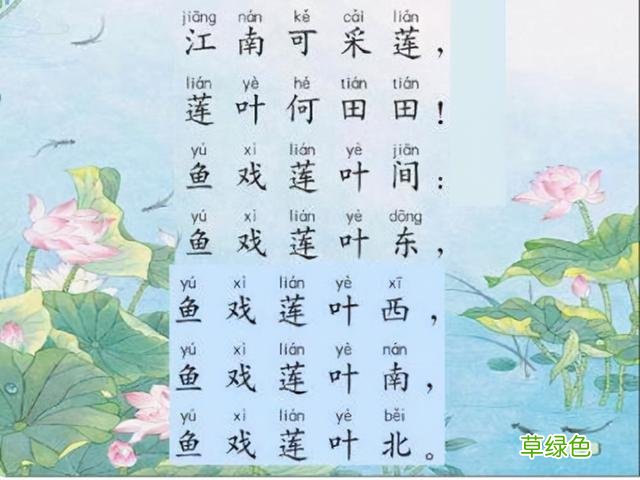 jiāng nán kě cǎi lián
江南可采莲，
lián yè hé tián tián
莲叶何田田！
yú xì lián yè jiān
鱼戏莲叶间：
yú xì lián yè dōng
鱼戏莲叶东，
yú xì lián yè xī
鱼戏莲叶西，
yú xì lián yè nán
鱼戏莲叶南，
yú xì lián yè běi
鱼戏莲叶北。
草绿色